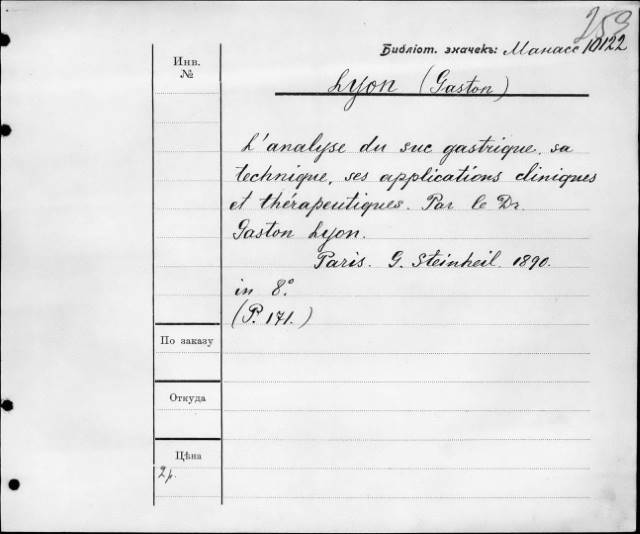 253
Библіот. значекъ: Манасс 10122
Инв.
№
Lyon (Gaston)
L'analyse du suc gastrique, sa
technique, ses applications cliniques
et thérapeutiques. Par le Dr.
Gaston Lyon.
Paris. G. Steinheil. 1890.
in 8°.
(P. 171.)
По заказу
Откуда
Цѣна
2 р.